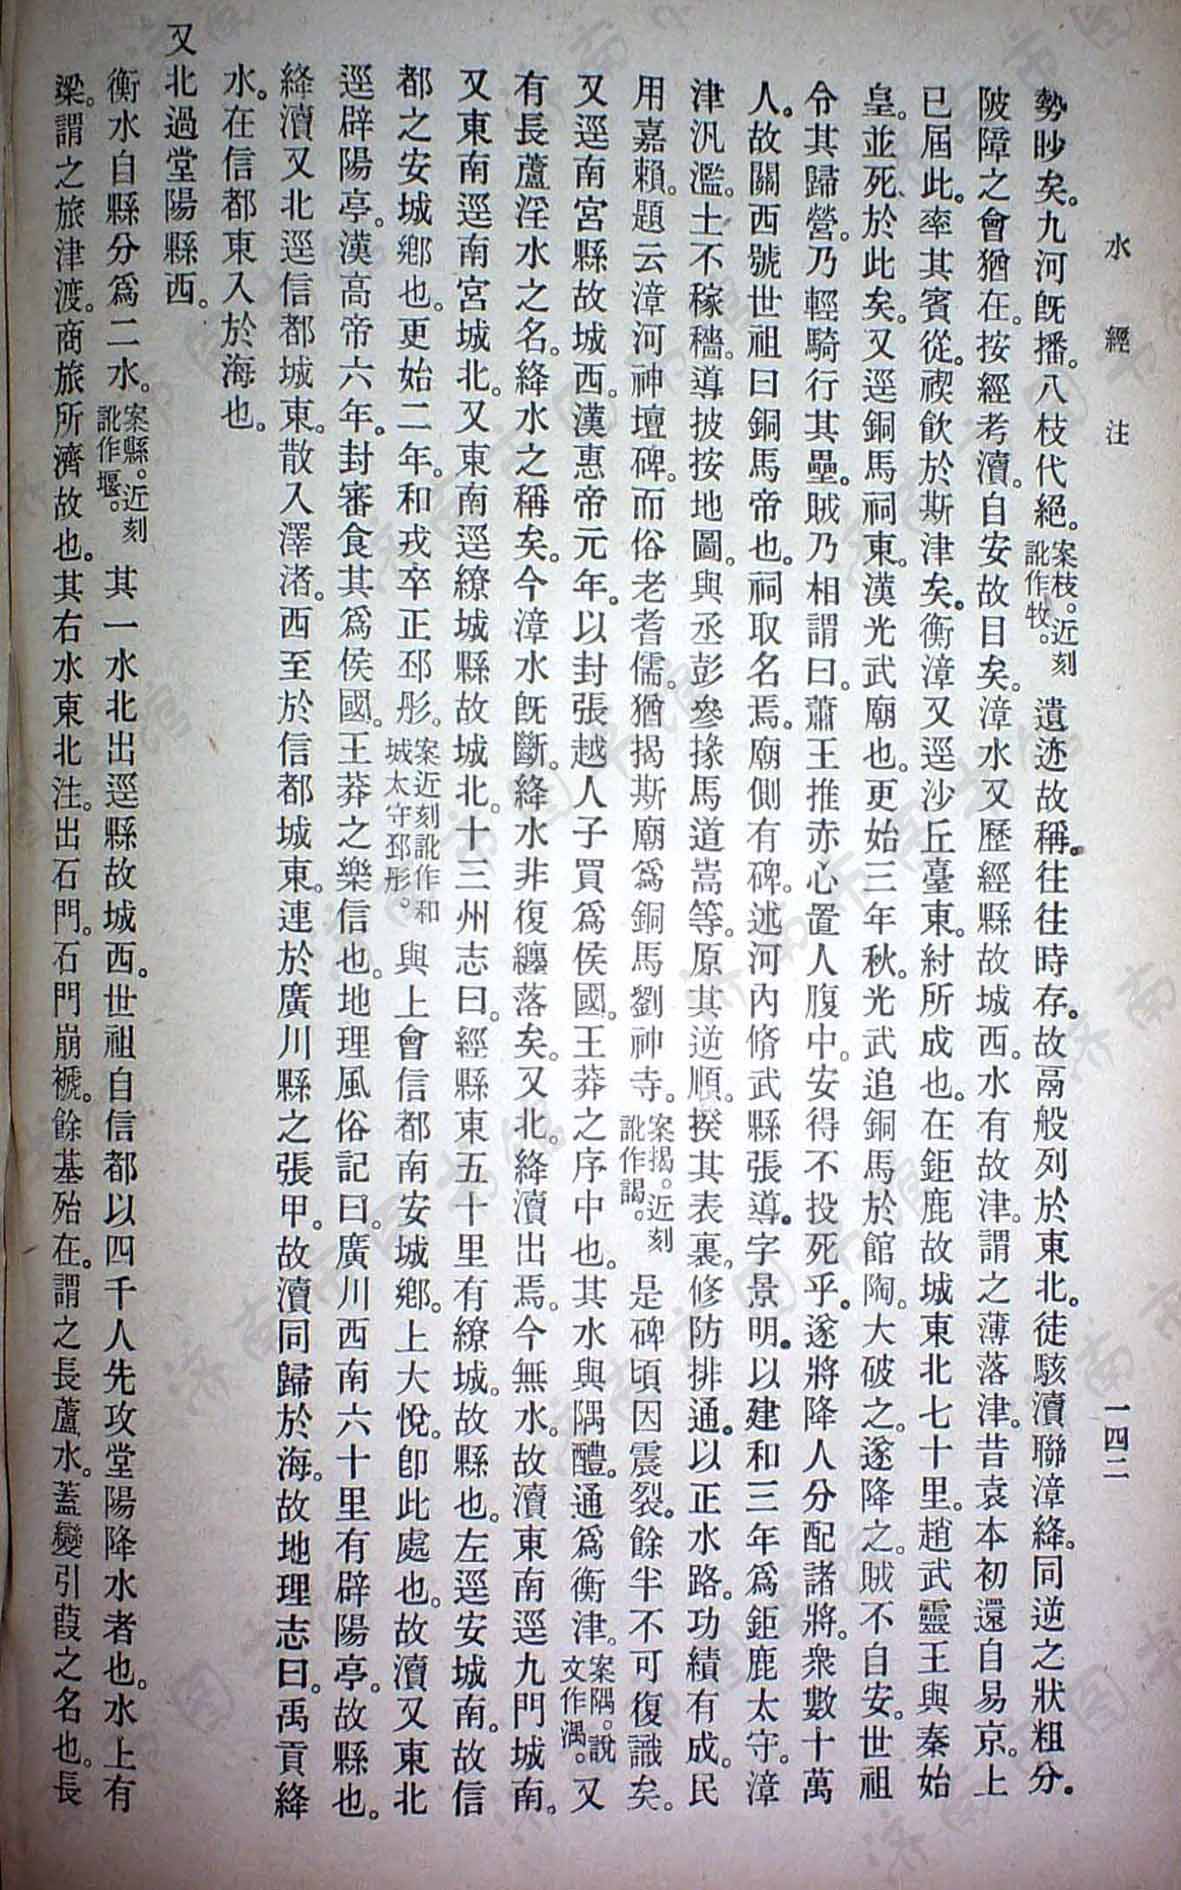 水經注
一四二
勢眇矣。九河旣播。八枝代絕。案枝。近刻訛作牧。遺迹故稱。往往時存。故鬲般列於東北。徒駭瀆聯漳絳。同逆之狀粗分。
陂障之會猶在。按經考瀆。自安故目矣。漳水又歷經縣故城西。水有故津。謂之薄落津。昔袁本初還自易京。上
已屆此。率其賓從。禊飮於斯津矣。衡漳又逕沙丘臺東。紂所成也。在鉅鹿故城東北七十里。趙武靈王與秦始
皇。並死於此矣。又逕銅馬祠東。漢光武廟也。更始三年秋。光武追銅馬於館陶。大破之。遂降之。賊不自安。世祖
令其歸營。乃輕騎行其壘。賊乃相謂曰。蕭王推赤心置人腹中。安得不投死乎。遂將降人分配諸將。衆數十萬
人。故關西號世祖曰銅馬帝也。祠取名焉。廟側有碑。述河內脩武縣張導。字景明。以建和三年爲鉅鹿太守。漳
津汎濫。土不稼穡。導披按地圖。與丞彭參掾馬道嵩等。原其逆順。揆其表裏。修防排通。以正水路。功績有成。民
用嘉賴。題云漳河神壇碑。而俗老耆儒。猶揭斯廟爲銅馬劉神寺。案揭。近刻訛作謁。是碑頃因震裂。餘半不可復識矣。
又逕南宮縣故城西。漢惠帝元年。以封張越人子買爲侯國。王莽之序中也。其水與隅醴。通爲衡津。案隅。說文作湡。又
有長蘆淫水之名。絳水之稱矣。今漳水旣斷。絳水非復纏落矣。又北。絳瀆出焉。今無水。故瀆東南逕九門城南。
又東南逕南宮城北。又東南逕繚城縣故城北。十三州志曰。經縣東五十里有繚城。故縣也。左逕安城南。故信
都之安城鄉也。更始二年。和戎卒正邳彤。案近刻訛作和城太守邳彤。與上會信都南安城鄉。上大悅。卽此處也。故瀆又東北
逕辟陽亭。漢高帝六年。封審食其爲侯國。王莽之樂信也。地理風俗記曰。廣川西南六十里有辟陽亭。故縣也。
絳瀆又北逕信都城東。散入澤渚。西至於信都城東。連於廣川縣之張甲。故瀆同歸於海。故地理志曰。禹貢絳
水。在信都東入於海也。
又北過堂陽縣西。
衡水自縣分爲二水。案縣。近刻訛作堰。其一水北出逕縣故城西。世祖自信都以四千人先攻堂陽降水者也。水上有
梁。謂之旅津渡。商旅所濟故也。其右水東北注。出石門。石門崩褫。餘基殆在。謂之長蘆水。蓋變引葭之名也。長